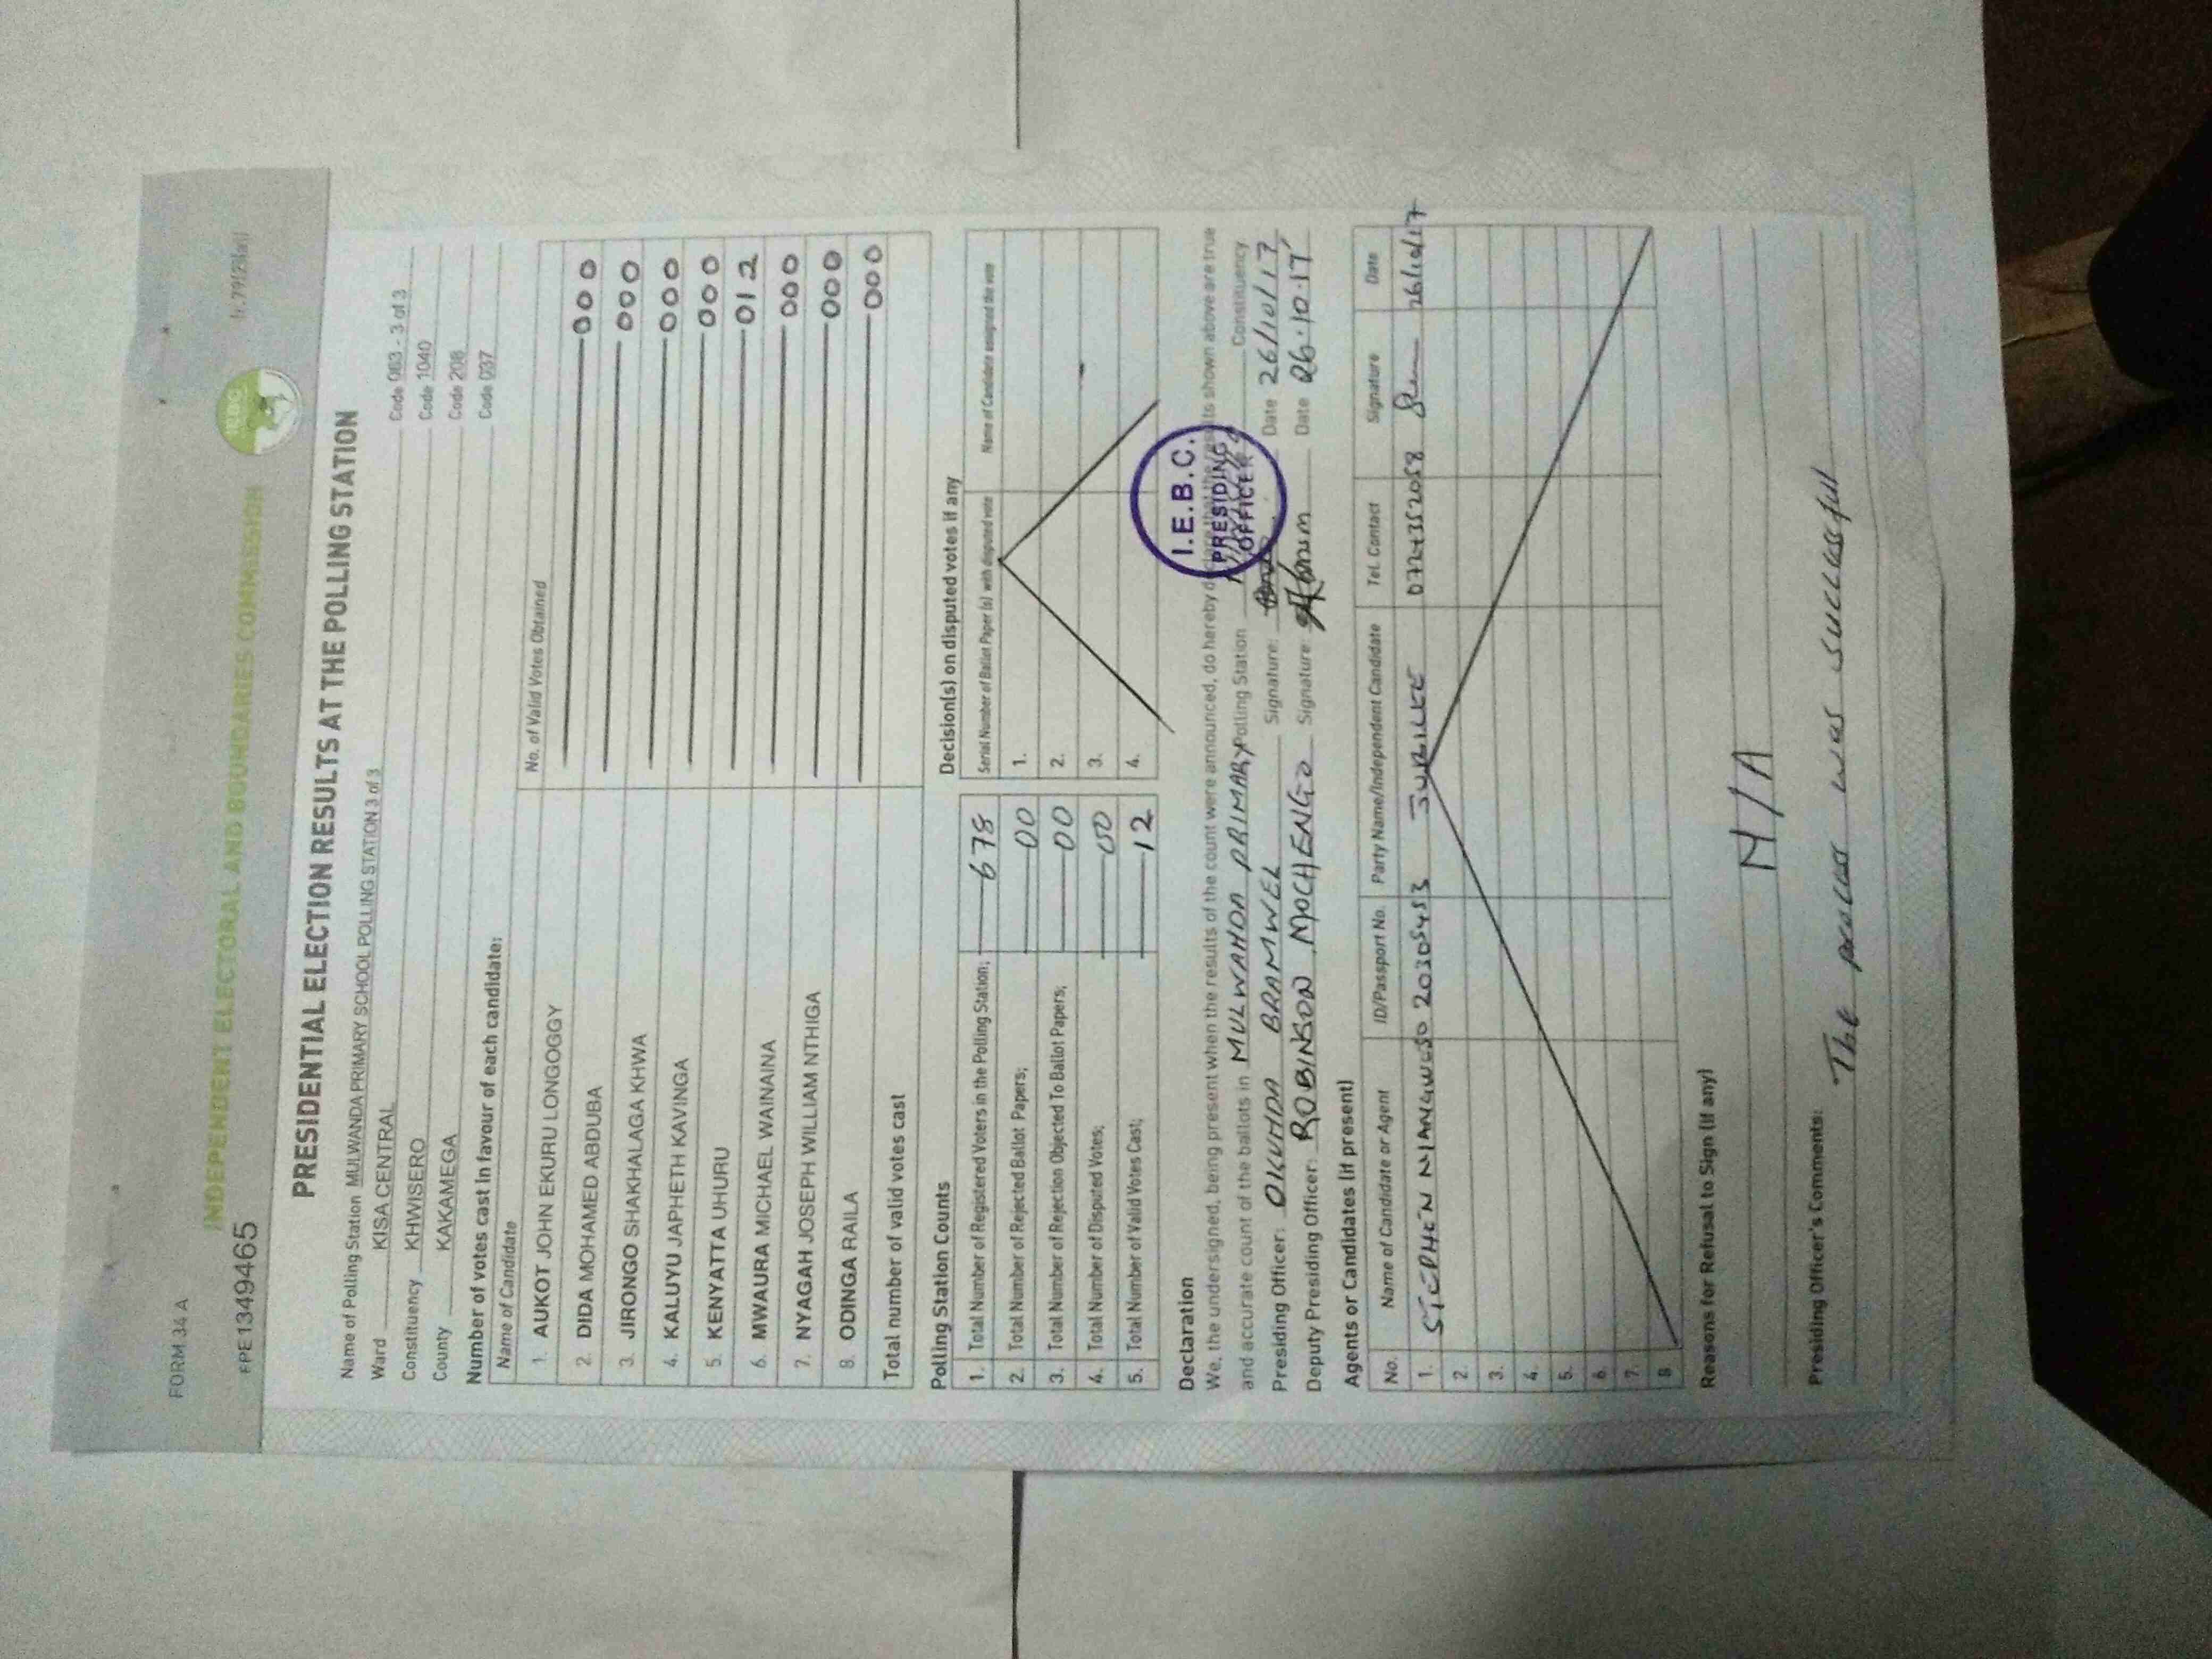 FORM 34 A
INDEPENDENT ELECTORAL AND BOUNDARIES COMMISSION
EPE1349465
IEBC
PRESIDENTIAL ELECTION RESULTS AT THE POLLING STATION
Name of Polling Station MULWANDA PRIMARY SCHOOL POLLING STATION 3 of 3 Code 063 - 3 of 3
Ward KISA CENTRAL Code 1040
Constituency KHWISERO Code 208
County KAKAMEGA Code 037
Number of votes cast in favour of each candidate:
Name of Candidate No. of Valid Votes Obtained
1. AUKOT JOHN EKURU LONGOGGY 000
2. DIDA MOHAMED ABDUBA 000
3. JIRONGO SHAKHALAGA KHWA 000
4. KALUYU JAPHETH KAVINGA 000
5. KENYATTA UHURU 012
6. MWAURA MICHAEL WAINAINA 000
7. NYAGAH JOSEPH WILLIAM NTHIGA 000
8. ODINGA RAILA 000
Total number of valid votes cast
Polling Station Counts
1. Total Number of Registered Voters in the Polling Station; 678
2. Total Number of Rejected Ballot Papers; 00
3. Total Number of Rejection Objected To Ballot Papers; 00
4. Total Number of Disputed Votes; 00
5. Total Number of Valid Votes Cast; 12
Decision(s) on disputed votes if any
Serial Number of Ballot Paper (s) with disputed vote Name of Candidate assigned the vote
1.
2.
3.
4.
I.E.B.C.
PRESIDING
OFFICER
Declaration
We, the undersigned, being present when the results of the count were announced, do hereby declare that the results shown above are true
and accurate count of the ballots in MULWAHDA PRIMARY Polling Station Constituency
Presiding Officer: OKUHDA BRAMWEL Signature: Date 26/10/17
Deputy Presiding Officer: ROBINSON MOCHENGO Signature: Date 26.10.17
Agents or Candidates (if present)
No. Name of Candidate or Agent ID/Passport No. Party Name/Independent Candidate Tel. Contact Signature Date
1. STEPHEN 20305453 JUBILEE 0724352058 26/10/17
2.
3.
4.
5.
6.
7.
8
Reasons for Refusal to Sign (if any)
N/A
Presiding Officer's Comments:
The process was successful